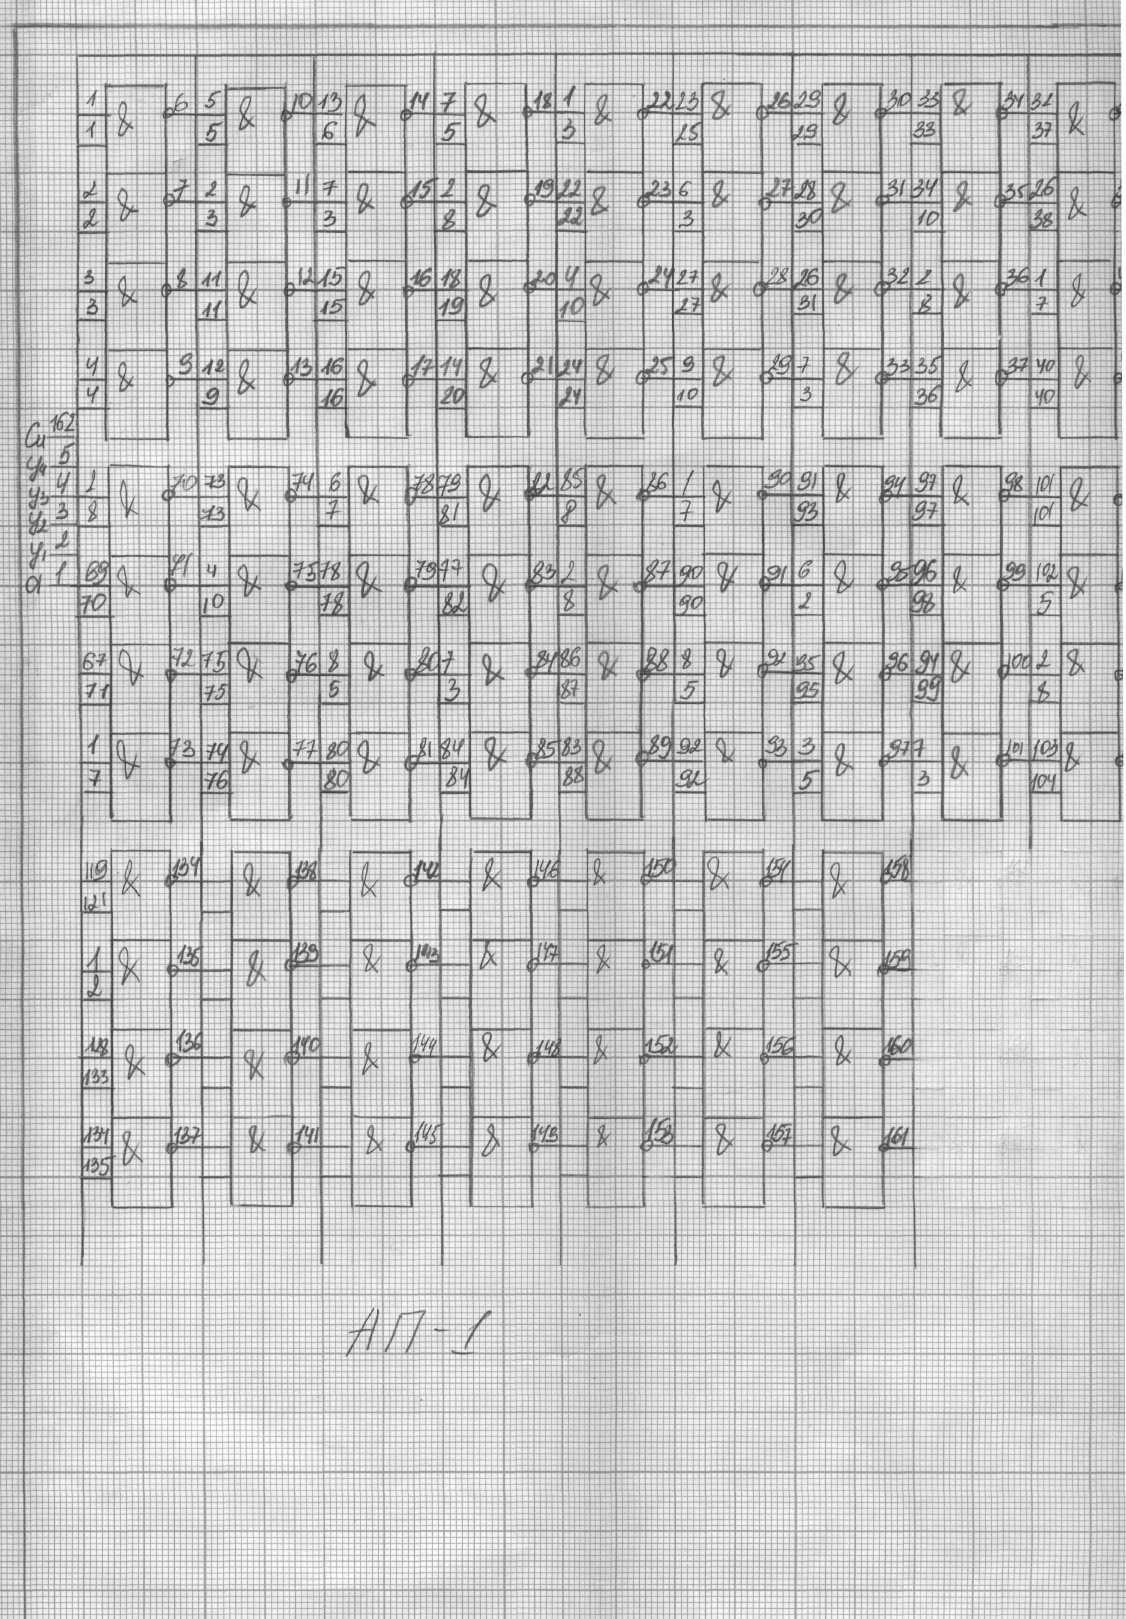 1 & 6 5 & 10 13 & 14 7 & 18 1 & 22 23 & 26 29 & 30 33 & 34 32 &
1 5 6 5 3 25 29 33 37
2 & 7 2 & 11 7 & 15 2 & 19 22 & 23 6 & 27 28 & 31 34 & 35 26 &
2 3 3 8 22 3 30 10 38
3 & 8 11 & 12 15 & 16 18 & 20 4 & 24 27 & 28 26 & 32 2 & 36 1 &
3 11 15 19 10 27 31 8 7
4 & 9 12 & 13 16 & 17 14 & 21 24 & 25 9 & 29 7 & 33 35 & 37 40 &
4 9 16 20 24 10 3 36 40
162
y4 5
y3 4
y2 3
y1 2
a 1
2 & 70 73 & 74 6 & 78 79 & 82 85 & 86 1 & 90 91 & 94 97 & 98 101 &
8 73 7 81 8 7 93 97 101
69 & 71 4 & 75 78 & 79 77 & 83 2 & 87 90 & 91 6 & 95 96 & 99 102 &
70 10 78 82 8 90 2 98 5
67 & 72 75 & 76 8 & 80 7 & 84 86 & 88 8 & 92 95 & 96 94 & 100 2 &
71 75 5 3 87 5 95 99 8
1 & 73 74 & 77 80 & 81 84 & 85 83 & 89 92 & 93 3 & 97 7 & 101 103 &
7 76 80 84 88 92 5 3 104
119 & 134 & 138 & 142 & 146 & 150 & 154 & 158
121
1 & 135 & 139 & 143 & 147 & 151 & 155 & 159
2
128 & 136 & 140 & 144 & 148 & 152 & 156 & 160
133
134 & 137 & 141 & 145 & 149 & 153 & 157 & 161
135
АП-1